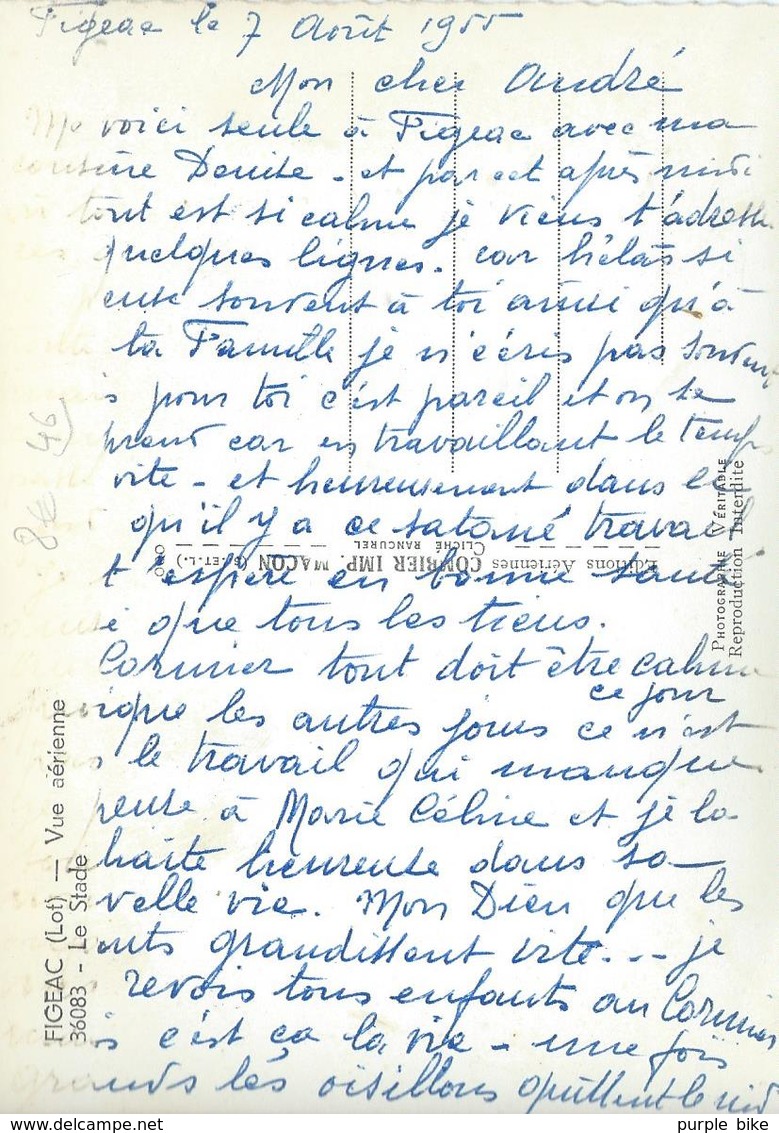 Figeac le 7 Août 1955
Mon cher André
Me voici seule à Figeac avec ma
cousine Denise - et par cet après midi
où tout est si calme je viens t'adresser
quelques lignes. car hélas si
pense souvent à toi ainsi qu'à
ta Famille je n'écris pas souvent
is pour toi c'est pareil et on se
prend car en travaillant le temps
vite - et heureusement dans ce
qu'il y a ce satané travail
t'espère en bonne santé
i que tous les tiens.
Cormier tout doit être calme
ce jour
ique les autres jours ce n'est
s le travail qui manque
pense à Marie Céline et je la
haite heureuse dans sa
velle vie. Mon Dieu que les
ants grandissent vite... je
revois tous enfants au Cormier
is c'est ça la vie - une fois
grands les oisillons quittent le nid
8€ 46
FIGEAC (Lot) — Vue aérienne
36083 - Le Stade
Editions Aériennes COMBIER IMP. MACON (S.-ET-L.)
CLICHÉ RANCUREL
PHOTOGRAPHIE VÉRITABLE
Reproduction Interdite
purple bike